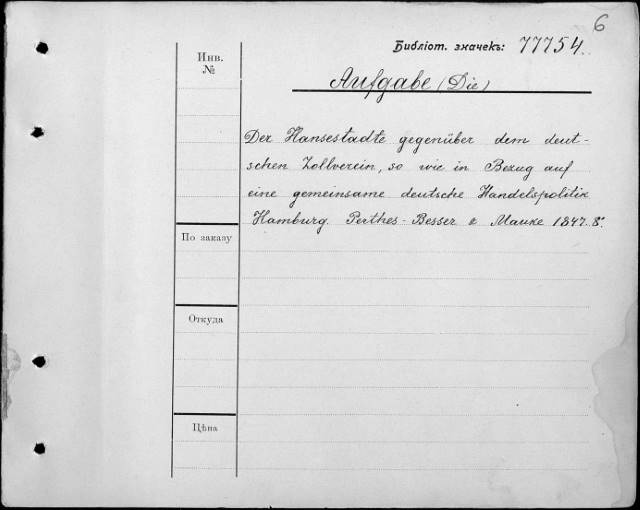 6
Библіот. значекъ: 77754.
Инв.
№
Aufgabe (Die)
Der Hansestadte gegenüber dem deut-
schen Zollverein, so wie in Bezug auf
eine gemeinsame deutsche Handelspolitik
Hamburg. Perthes-Besser & Mauke 1847. 8°.
По заказу
Откуда
Цѣна